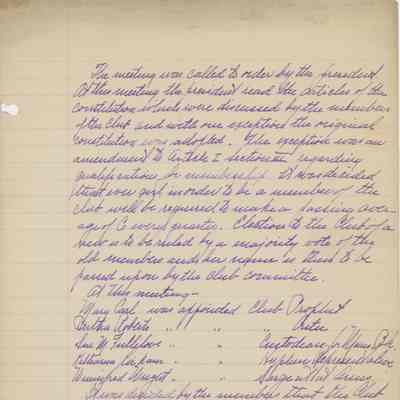 The meeting was called to order by the president
At this meeting the president read the articles of the
constitution which were discussed by the members
of the Club and with one exception the original
constitution was adopted. The exception was an
amendment to Article I section regarding
qualification for membership. It was decided
that ever girl in order to be a member of the
club will be required to make a passing aver-
age of C every quarter. Elections to the Club of a
new is to be ruled by a majority vote of the
old members and her name is then to be
passed upon by the club committee.
At this meeting—
Mary Carl was appointed Club Prophet
Bertha Roberts " " " Critic
M. Fullilove " " Custodian
" " Representative
Winnifred " " Sargent at Arms
It was decided by the members that the Club